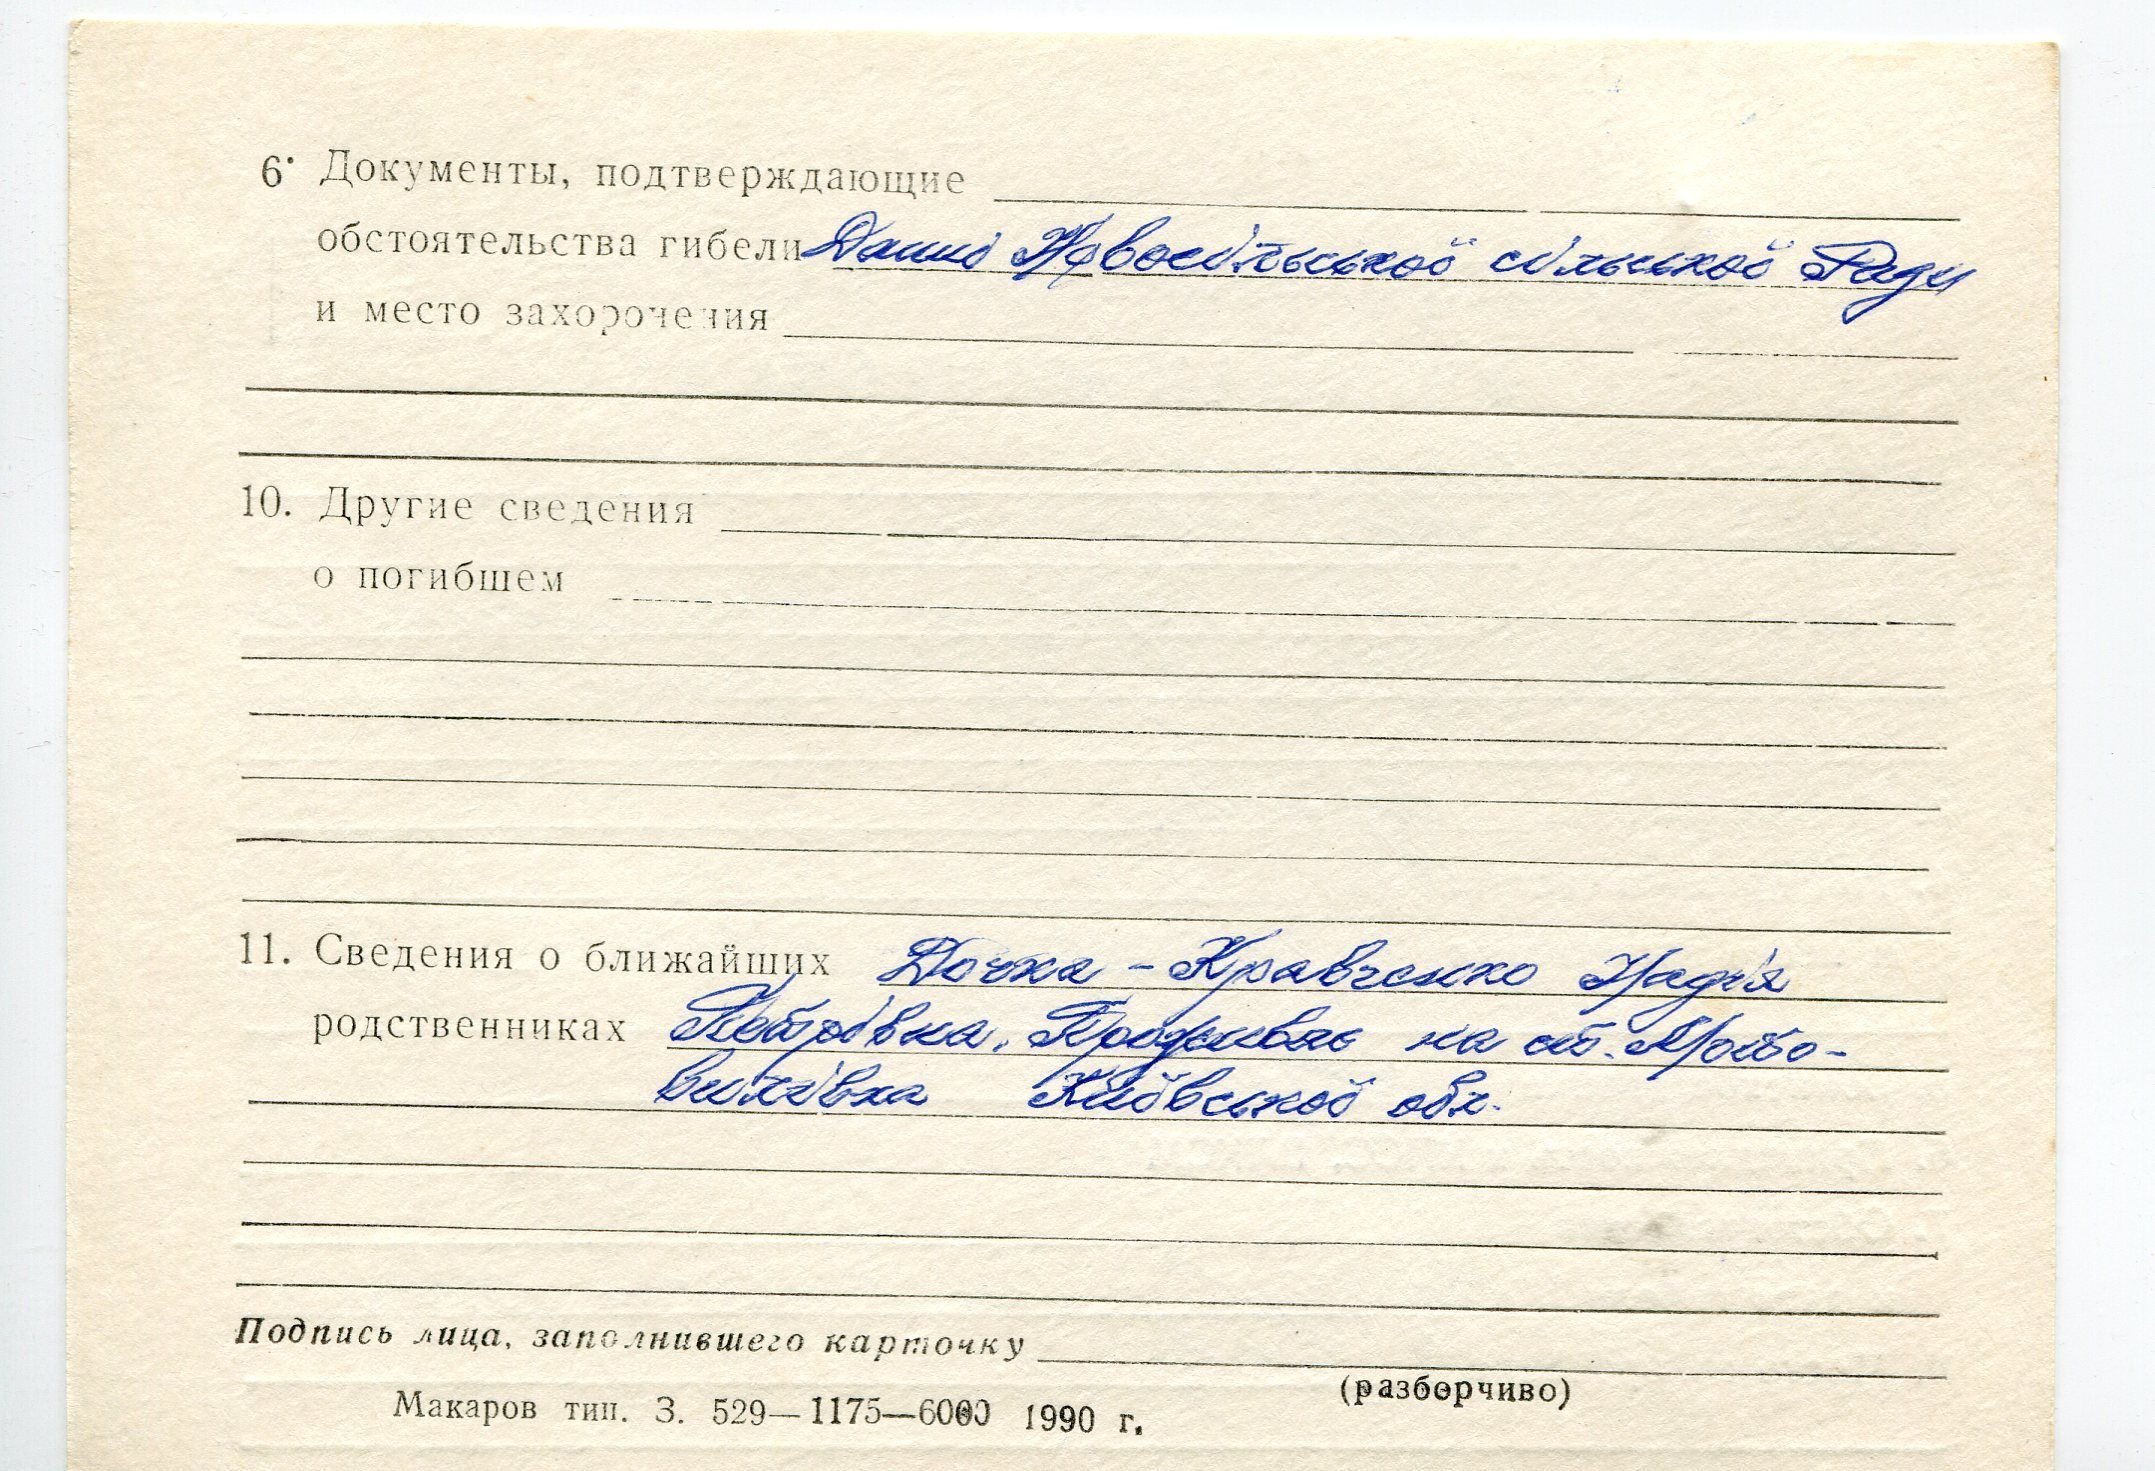 6. Документы, подтверждающие
обстоятельства гибели Данні Новосільської сільської Ради
и место захорочения
10. Другие сведения
о погибшем
11. Сведения о ближайших Дочка - Кравченко Надія
родственниках Петрівна. Проживає на ст. Мото-
вилівка Київської обл.
Подпись лица, заполнившего карточку
(разборчиво)
Макаров тип. З. 529—1175—6000 1990 г.